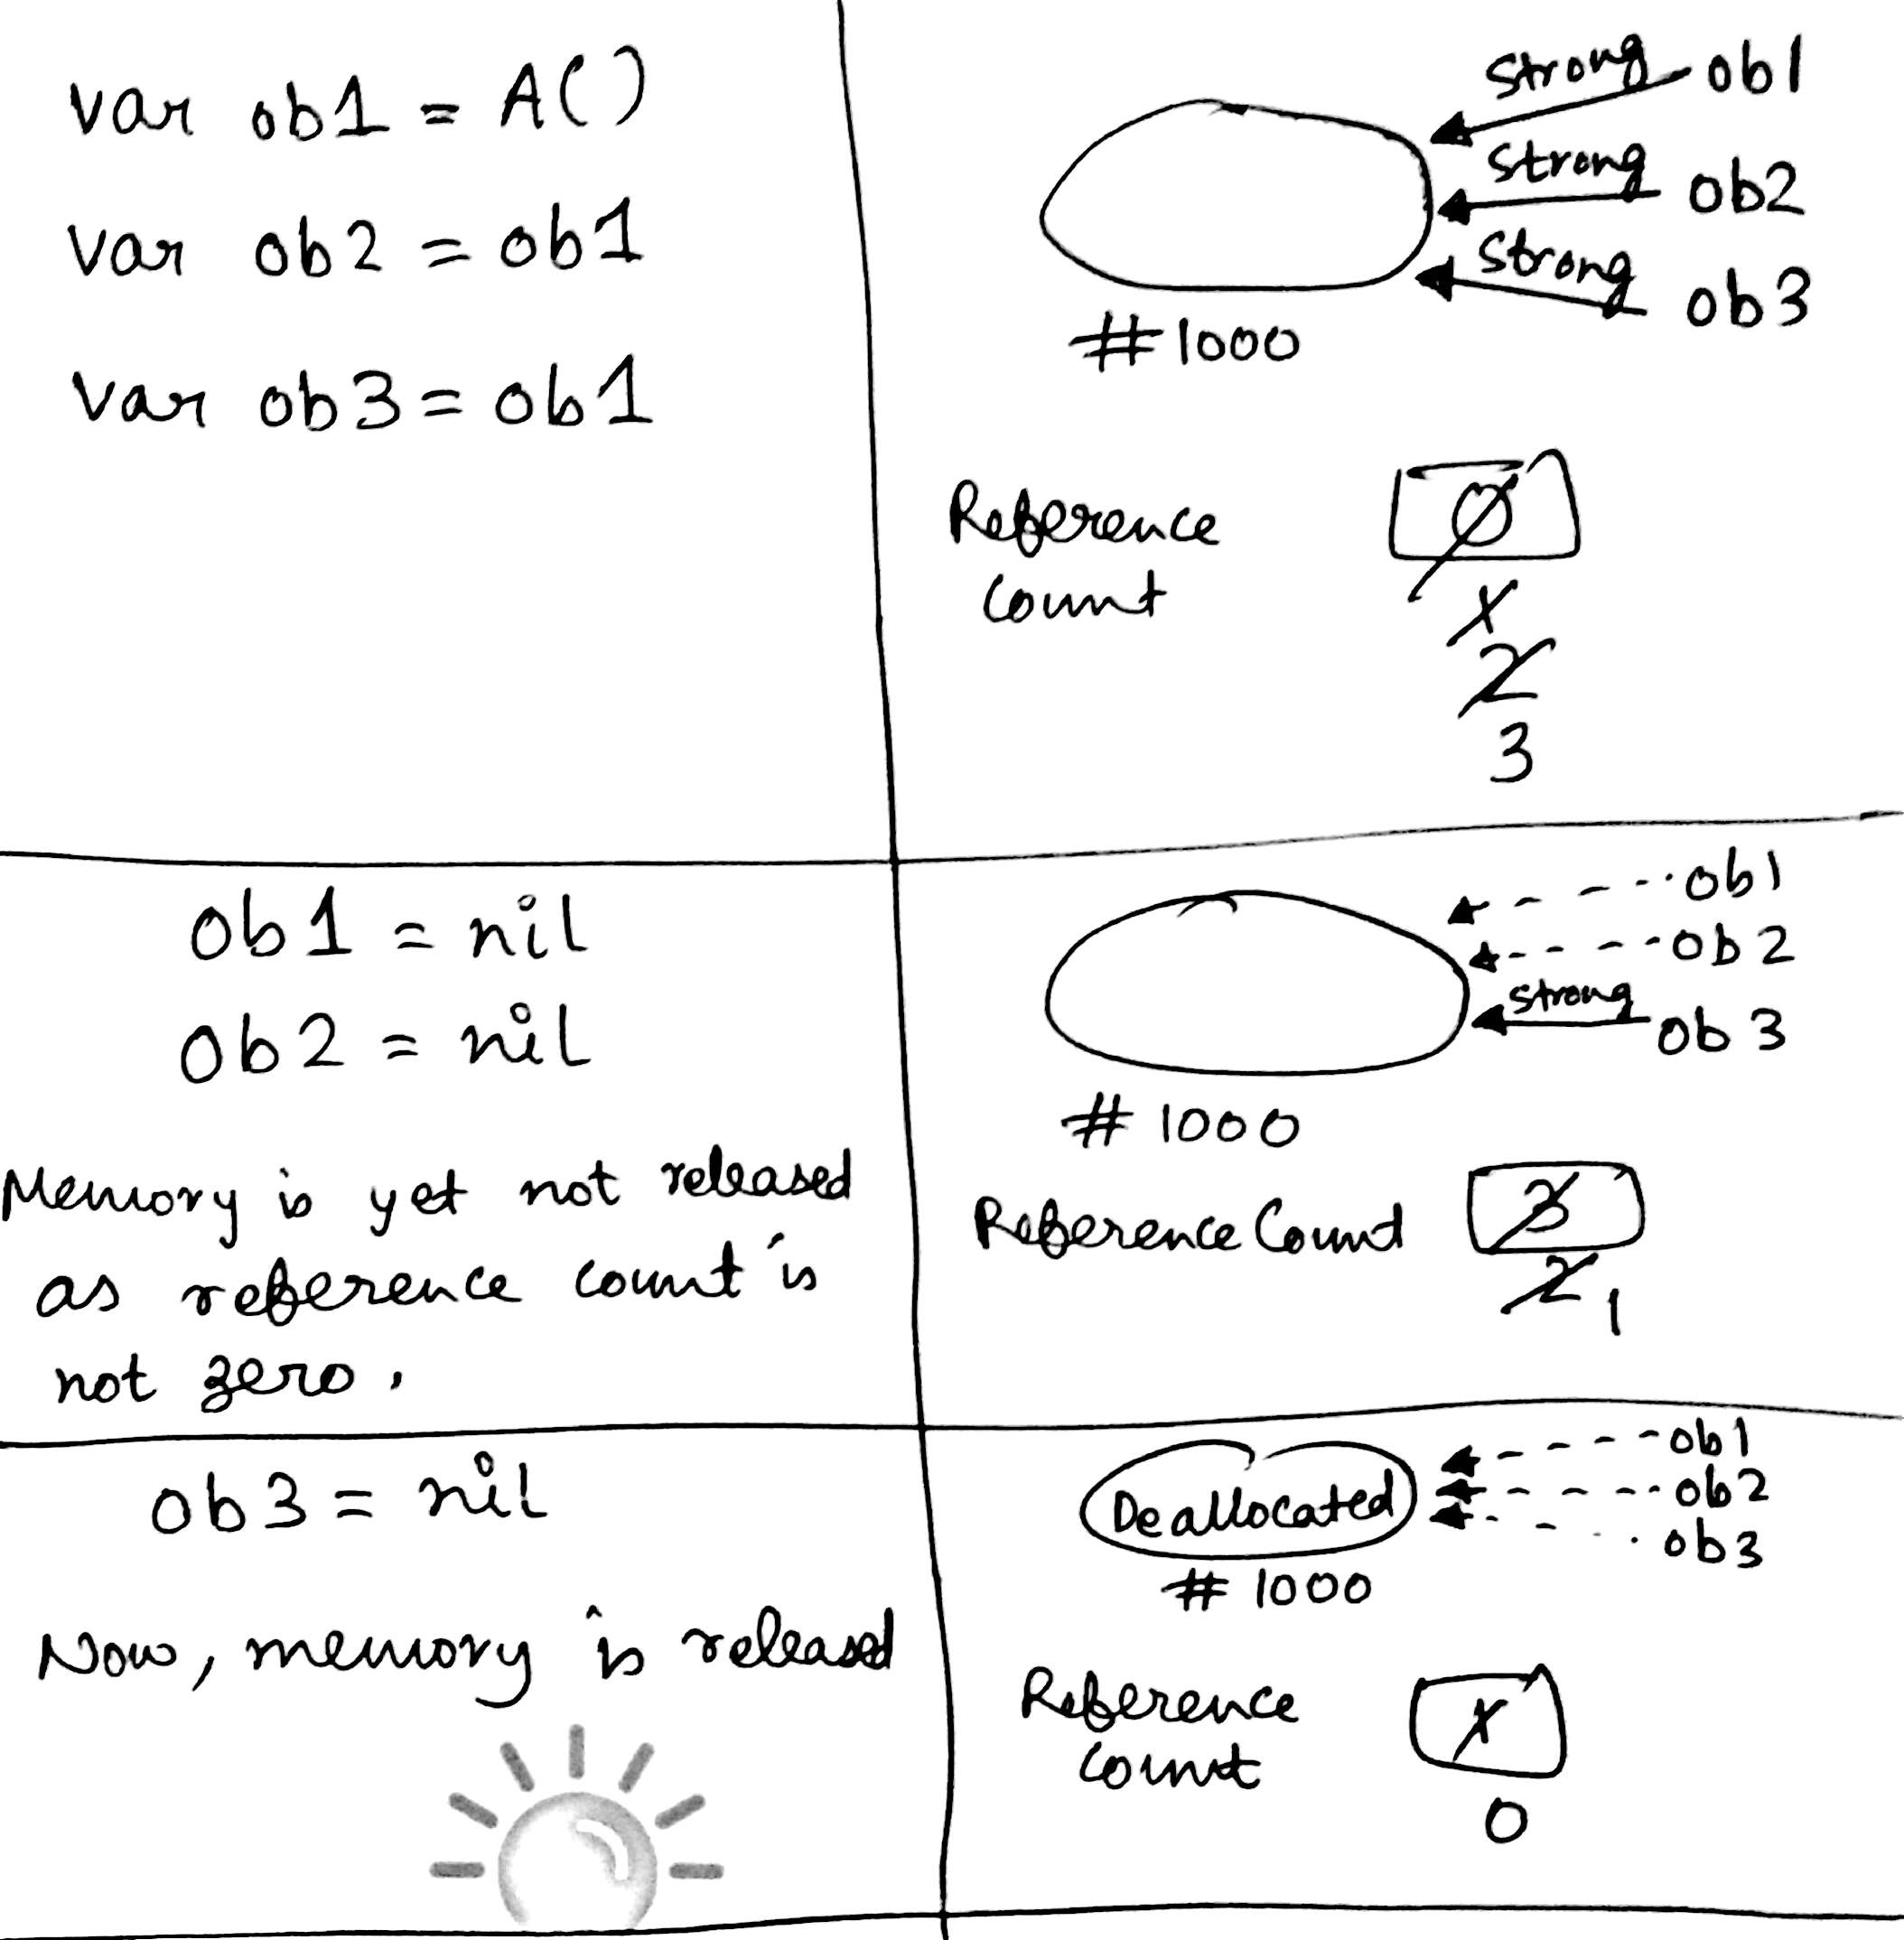 var ob1 = A()
var ob2 = ob1
var ob3 = ob1
strong ob1
strong ob2
strong ob3
#1000
Reference
Count
0
1
2
3
ob1 = nil
ob2 = nil
Memory is yet not released
as reference count is
not zero.
ob1
ob2
strong ob3
# 1000
Reference Count
3
2 1
ob3 = nil
Now, memory is released
Deallocated
ob1
ob2
ob3
# 1000
Reference
Count
1
0